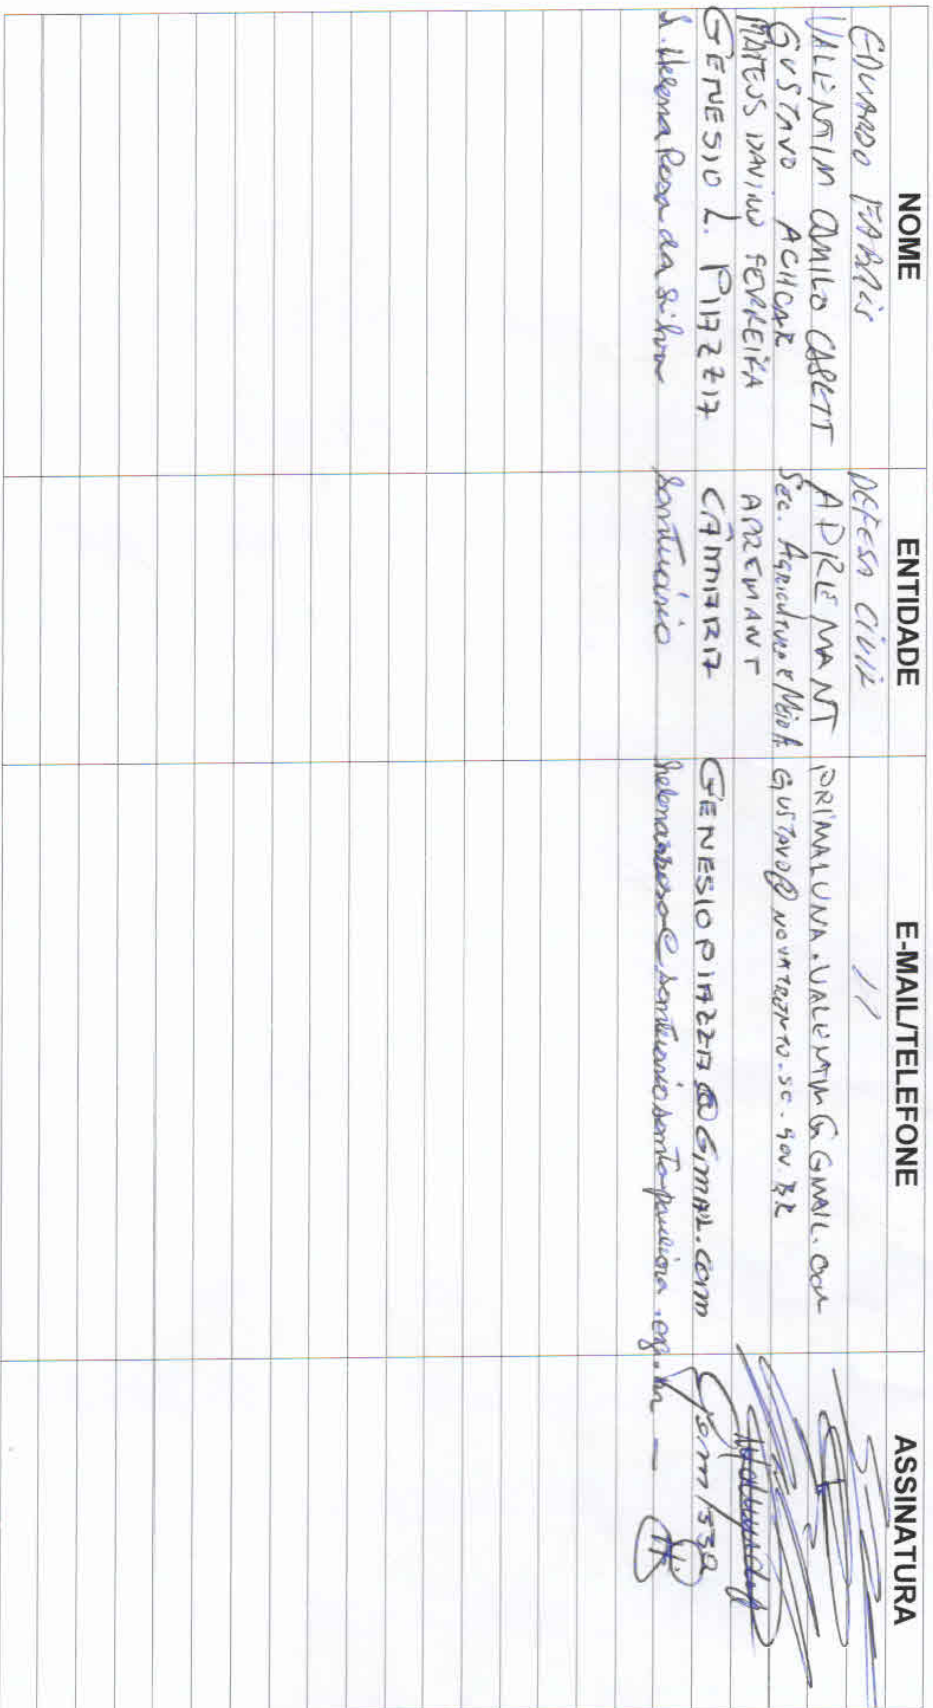 NOME ENTIDADE E-MAIL/TELEFONE ASSINATURA
EDUARDO FABRIS DEFESA CIVIL 11
VALENTIM CAMILO CASETT APREMANT PRIMALUNA.VALENTIM@GMAIL.COM
GUSTAVO ACHCAR Sec. Agricultura e Meio A. GUSTAVO@NOVATRENTO.SC.GOV.BR
MATEUS DAVINO FERREIRA APREMANT
GENESIO L. PIAZZA CÂMARA GENESIOPIAZZA@GMAIL.COM
Ir. Helena Rosa da Silva Santuário